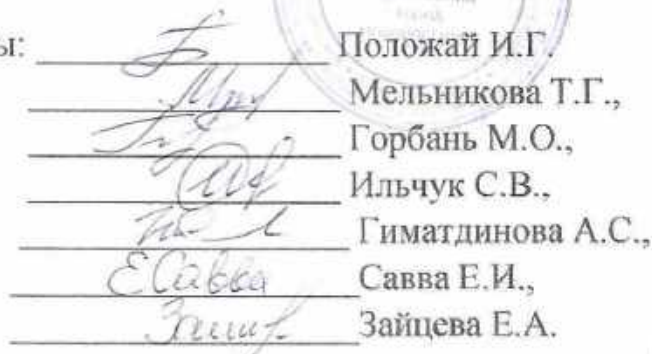 ы: Положай И.Г.
Мельникова Т.Г.,
Горбань М.О.,
Ильчук С.В.,
Гиматдинова А.С.,
ЕСавва Савва Е.И.,
Зайцева Е.А.